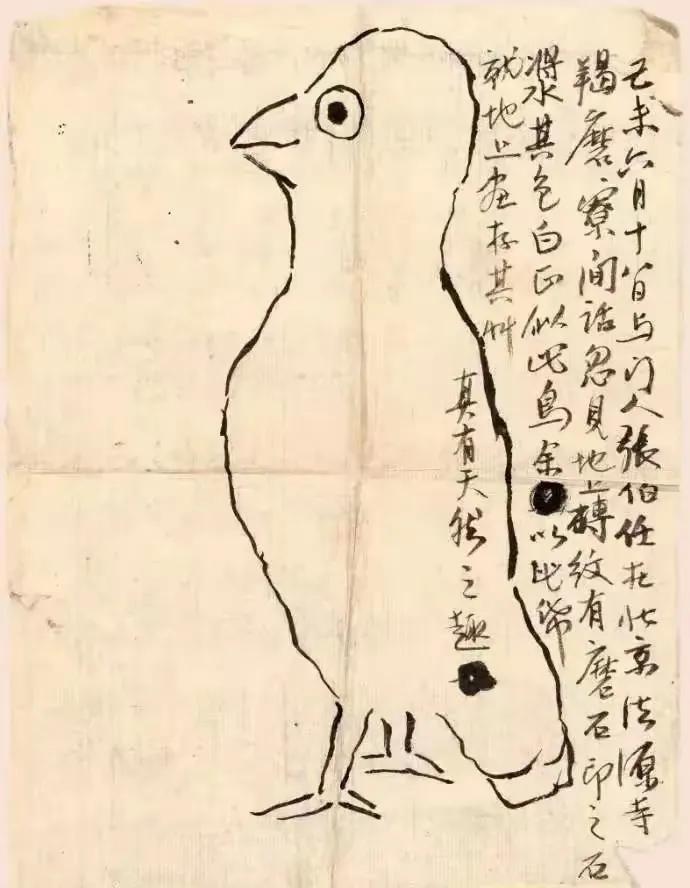 己未六月十八日与门人張伯任在北京法源寺
羯磨寮間話忽見地上磚紋有磨石印之石
漿其色白正似此鳥余以此紙
就地上畫存其艸
真有天然之趣